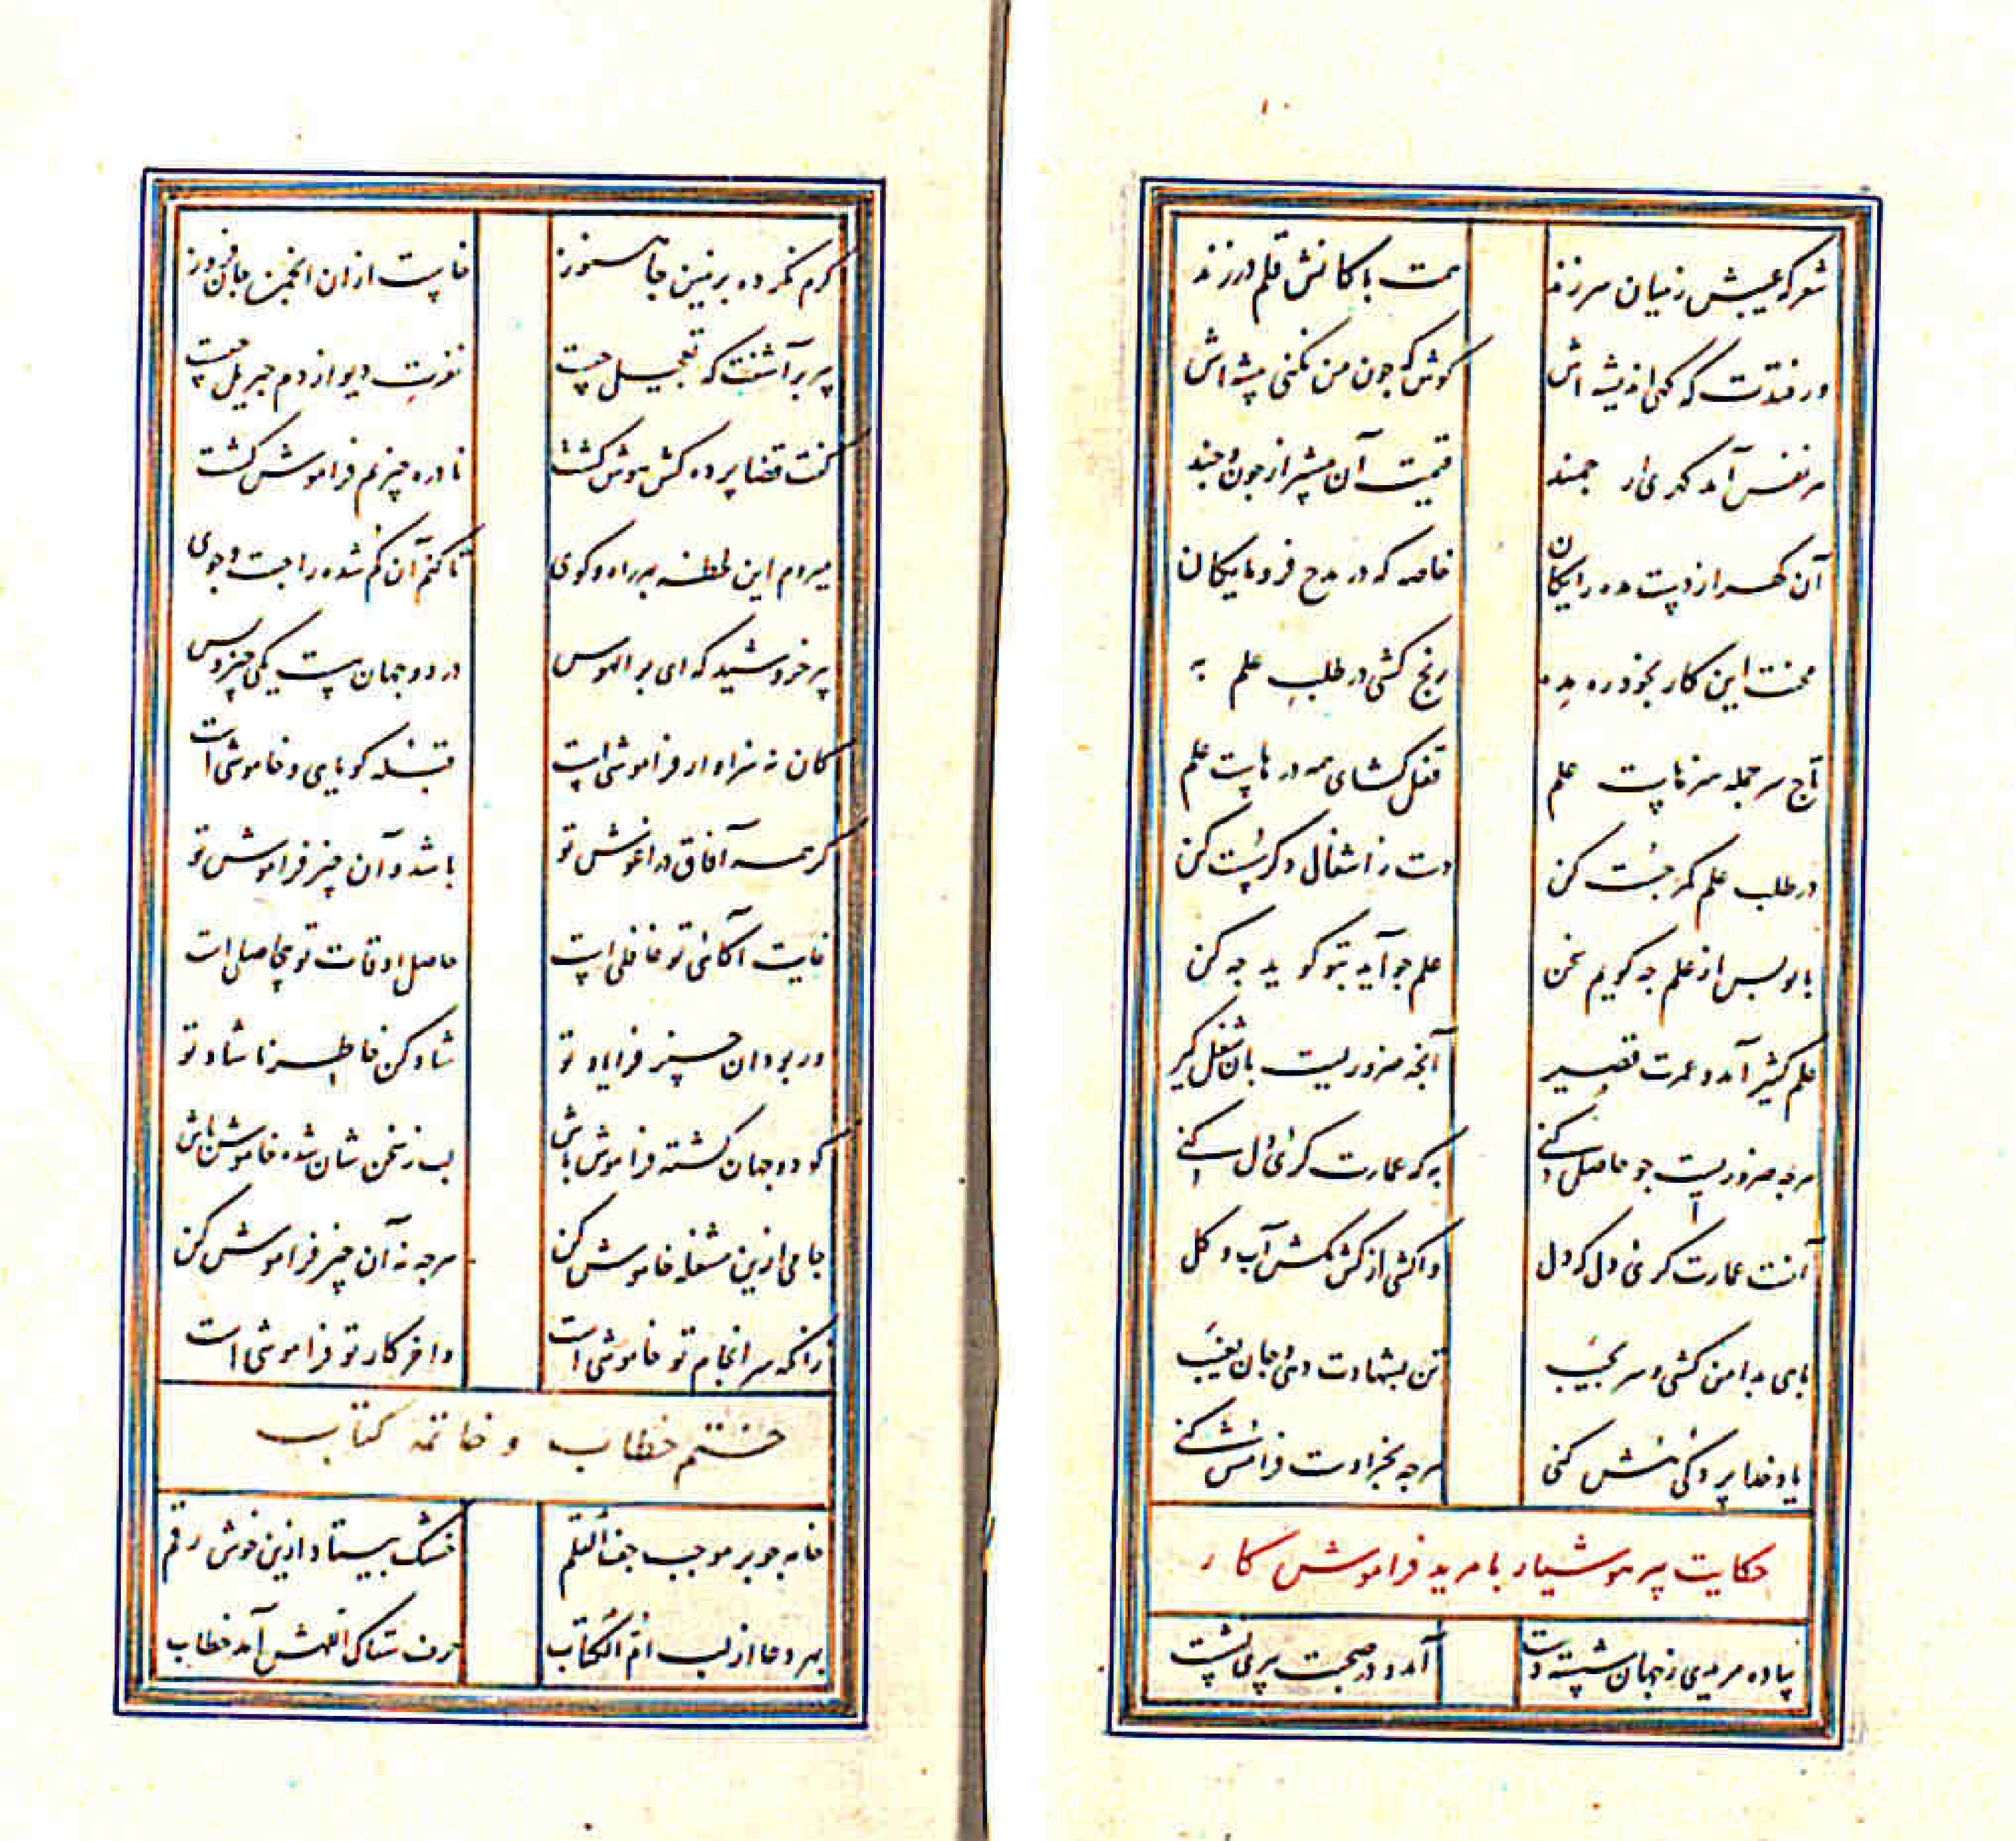 شعر که عیبش ز میان سر زند
هست باکانش قلم در زند
ور فتدت که گهی اندیشه اش
کوش که چون من نکنی پیشه اش
هر نفس آمد گهری ارجمند
قیمت آن بیشتر از چون و چند
آن گهر از دست مده رایگان
خاصه که در مدح فرومایگان
محنت این کار بخود ره مده
رنج کشی در طلب علم به
تاج سر جمله هنرهاست علم
قفل گشای همه درهاست علم
در طلب علم کمر چست کن
دست ز اشغال دگر سست کن
با تو پس از علم چه گویم سخن
علم چو آید بتو گوید چه کن
علم کثیر آمد و عمرت قصیر
آنچه ضروریست بان شغل گیر
هرچه ضروریست چو حاصل کنی
به که عمارت گری دل کنی
آنست عمارت گری دل که دل
واکشی از کشمکش آب و گل
پای بدامن کشی و سر بجیب
تن بشهادت دهی و جان بغیب
یاد خدا پردگی هش کنی
هرچه بجز اوست فرامش کنی
حکایت پیر هوشیار با مرید فراموش کار
ساده مریدی ز جهان شسته دست
آمد و در صحبت پیری نشست
گرم نکرده بزمین جا هنوز
خاست از ان انجمن جان فروز
پیر برآشفت که تعجیل چیست
نفرت دیو از دم جبریل چیست
گفت قضا پرده کش هوش گشت
نادره چیزیم فراموش گشت
میروم این لحظه بهر راه و کوی
تا کنم آن گم شده را جست و جوی
پیر خروشید که ای بو الهوس
در دو جهان هست یکی چیز و بس
کان نه سزاوار فراموشی است
قبله گویایی و خاموشی است
گر همه آفاق در آغوش تو
باشد و آن چیز فراموش تو
غایت آگاهی تو غافلی است
حاصل اوقات تو بیحاصلی است
ور بود آن چیز فرایاد تو
شاد کن خاطر ناشاد تو
گو دو جهان گشته فراموش باش
لب ز سخن شان شده خاموش باش
جامی ازین مشغله خاموش کن
هرچه نه آن چیز فراموش کن
زانکه سرانجام تو خاموشی است
وآخر کار تو فراموشی است
ختم خطاب و خاتمه کتاب
خامه چو بر موجب جف القلم
خشک بیستاد ازین خوش رقم
بهر دعا از لب ام الکتاب
حرف ساکی اللهش آمد خطاب